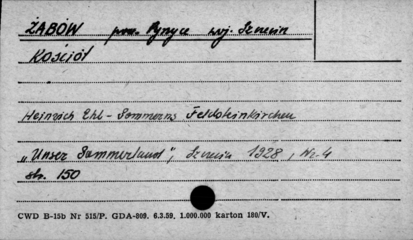 ŻABÓW pow. Pyrzyce woj. Szczecin
Kościół
Heinrich Ehl - Pommerns Feldsteinkirchen
„Unser Pommerland", Szczecin 1928, Nr. 4
str. 150
CWD B-15b Nr 515/P. GDA-809. 6.3.59. 1.000.000 karton 180/V.